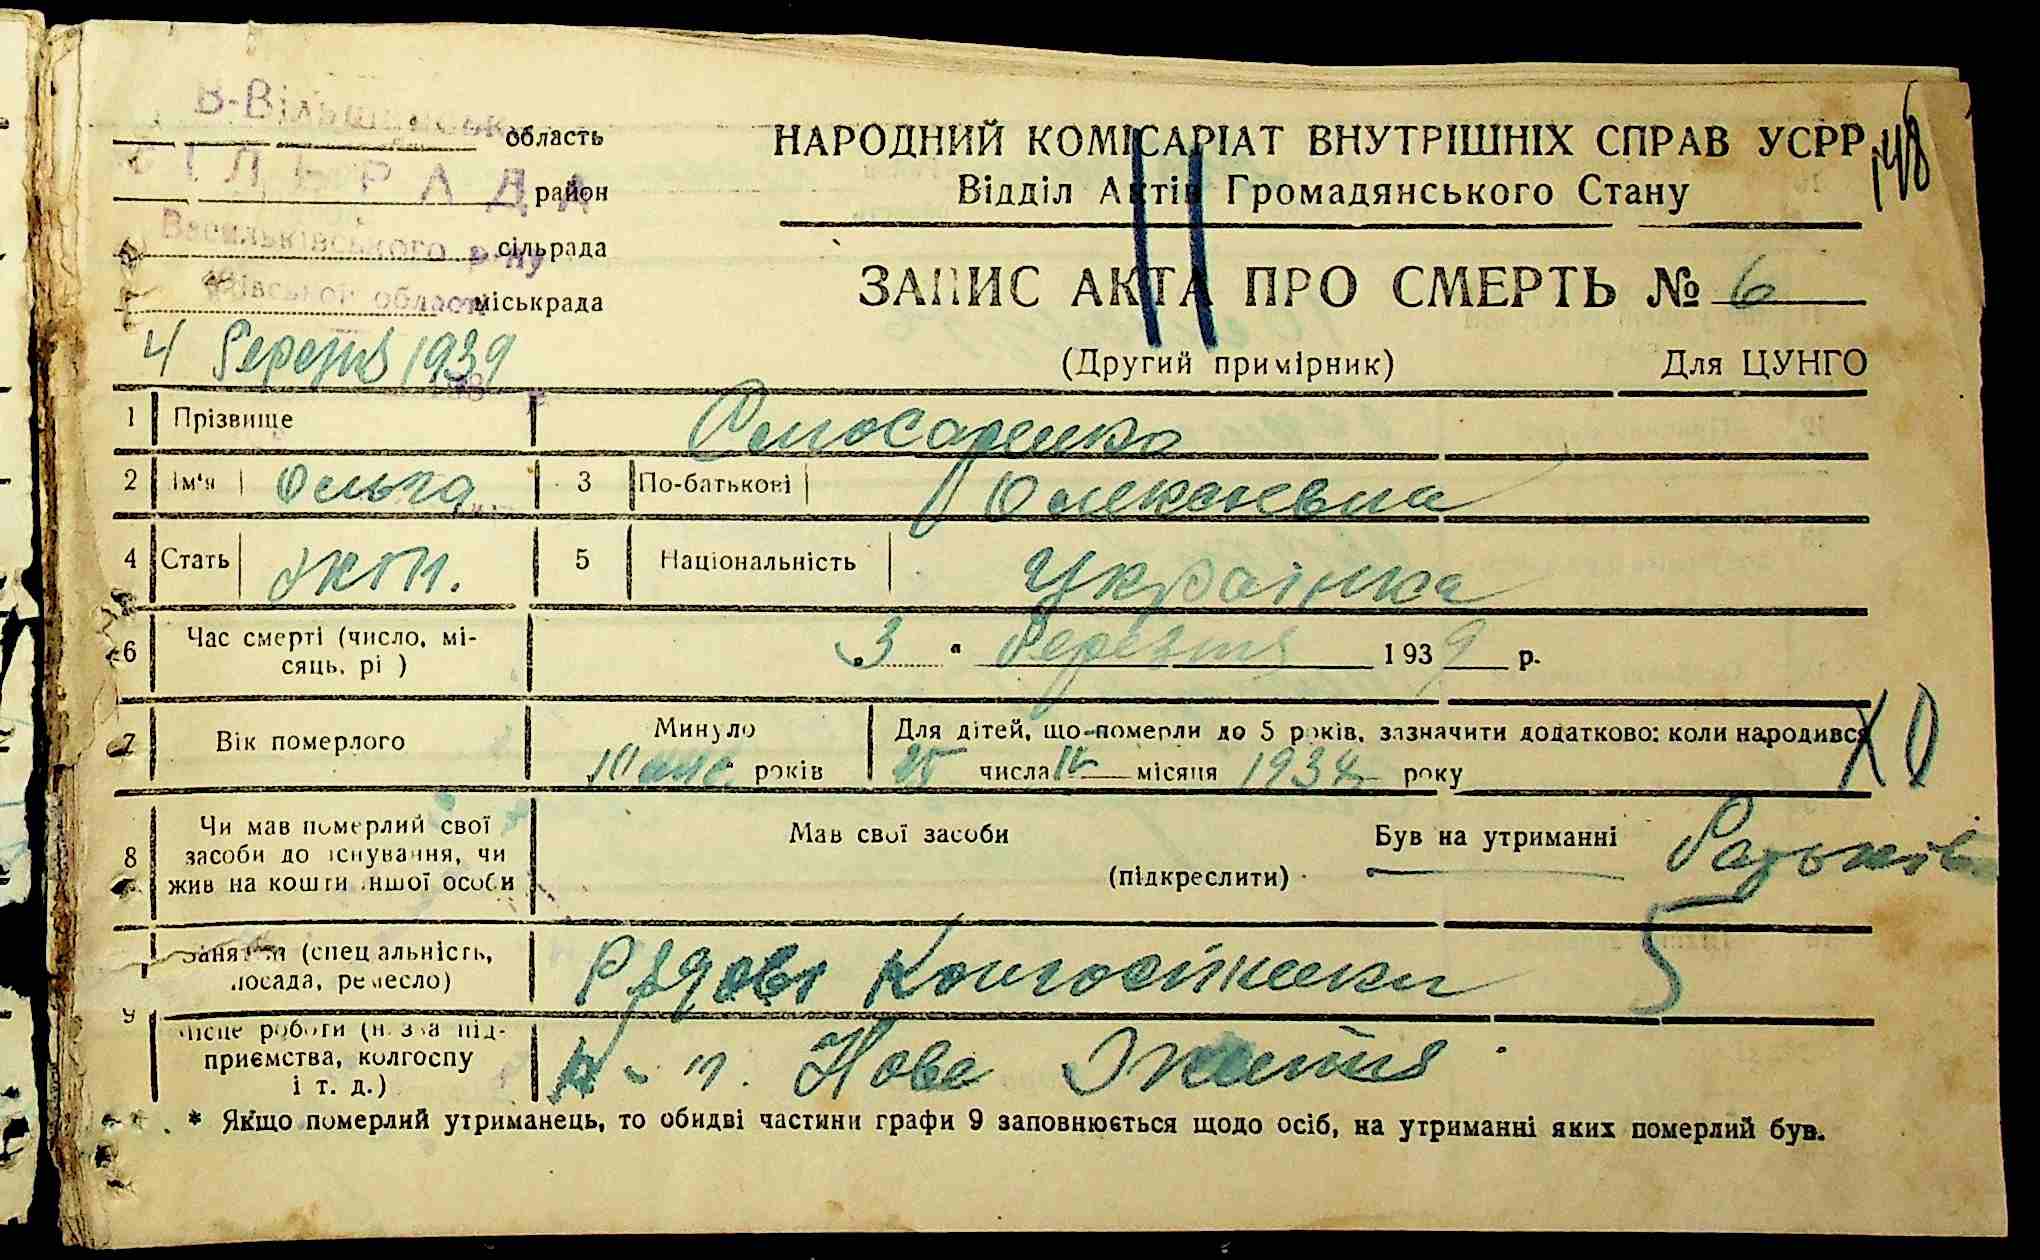 В-Вільшанська область
СІЛЬРАДА район
Васильківського р-ну сільрада
Київської області міськрада
4 березня 1939
148
НАРОДНИЙ КОМІСАРІАТ ВНУТРІШНІХ СПРАВ УСРР
Відділ Актів Громадянського Стану
ЗАПИС АКТА ПРО СМЕРТЬ № 6
(Другий примірник) Для ЦУНГО
1 Прізвище Слюсаренко
2 Ім'я Ольга 3 По-батькові
4 Стать жін. 5 Національність Українка
6 Час смерті (число, мі-
сяць, рі )
3 " березня 1939 р.
7 Вік померлого Минуло років
Для дітей, що померли до 5 років, зазначити додатково: коли народився
25 числа місяця 1938 року
8 Чи мав померлий свої
засоби до існування, чи
жив на кошти іншої особи
Мав свої засоби Був на утриманні Батьків
(підкреслити)
5
9 Заняття (спеціальність,
посада, ремесло)
Рядові Колгоспники
Місце роботи (назва під-
приємства, колгоспу
і т. д.)
к-п. Нове Життя
* Якщо померлий утриманець, то обидві частини графи 9 заповнюється щодо осіб, на утриманні яких померлий був.